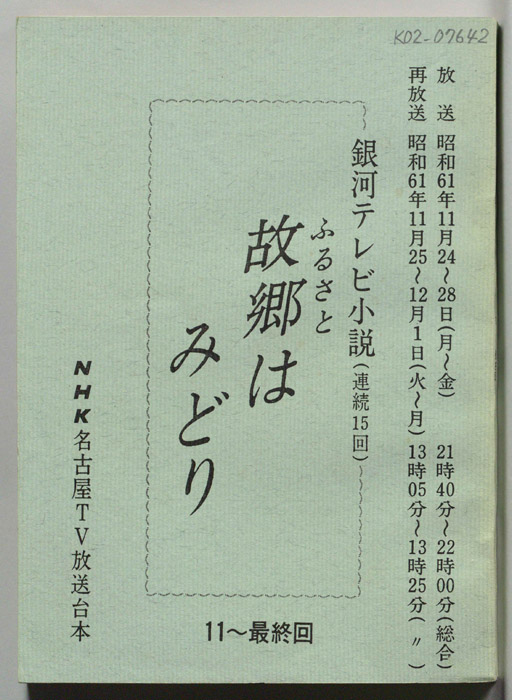 K02-07642
放送 昭和61年11月24〜28日(月〜金) 21時40分〜22時00分(総合)
再放送 昭和61年11月25〜12月1日(火〜月) 13時05分〜13時25分(〃)
銀河テレビ小説(連続15回)
ふるさと
故郷は
みどり
11〜最終回
NHK名古屋TV放送台本